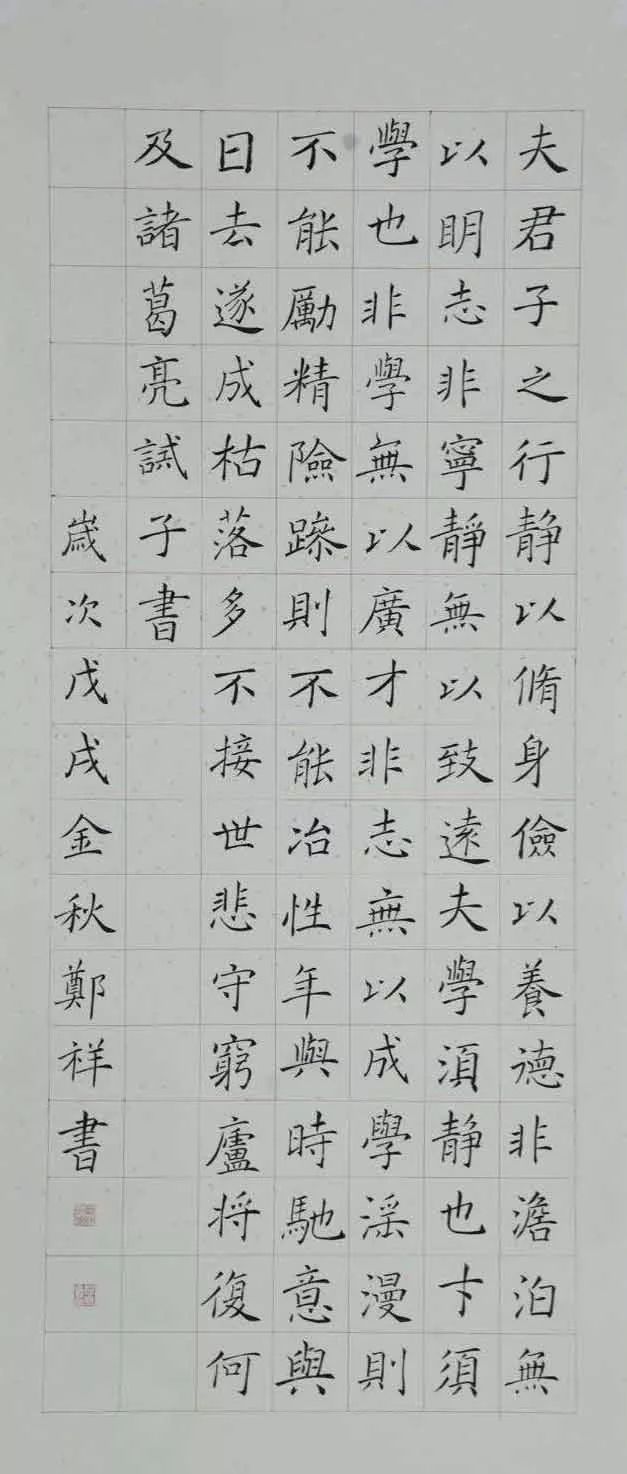 夫君子之行静以脩身儉以養德非澹泊無
以明志非寧靜無以致遠夫學湏静也卞須
學也非學無以廣才非志無以成學淫漫則
不能勵精險躁則不能冶性年與時馳意與
日去遂成枯落多不接世悲守窮廬将復何
及諸葛亮誡子書
歲次戊戌金秋鄭祥書